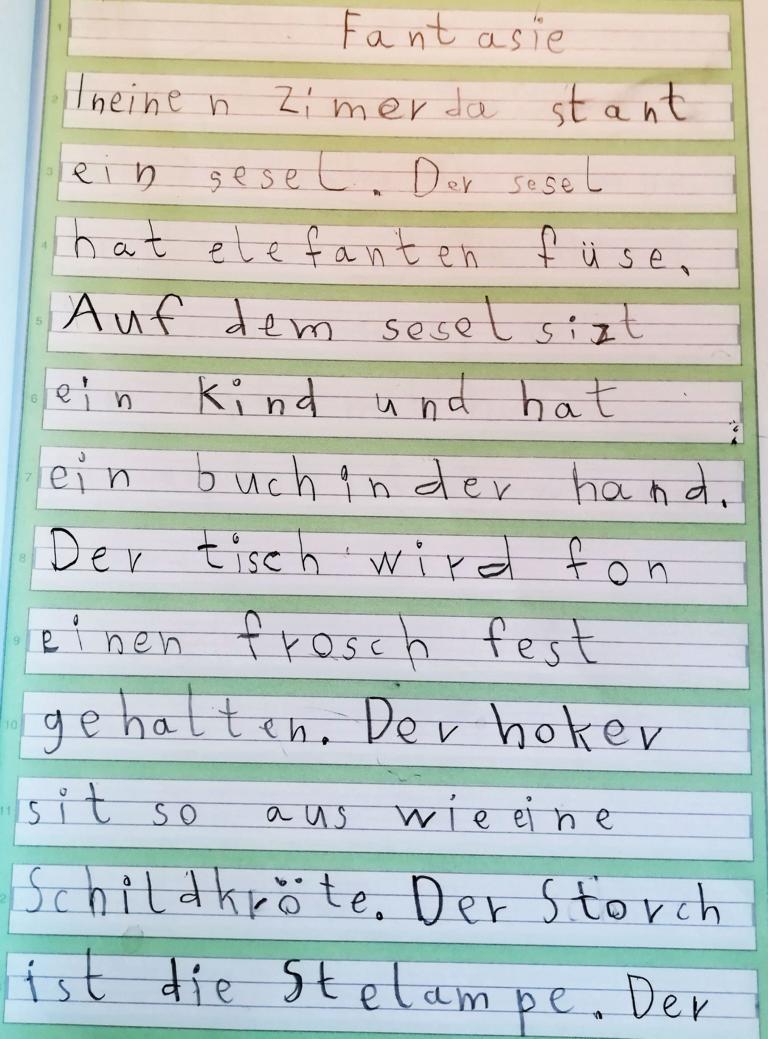 Fantasie
Ineinen Zimer da stant
ein sesel. Der sesel
hat elefanten füse.
Auf dem sesel sizt
ein Kind und hat
ein buch in der hand.
Der tisch wird fon
einen frosch fest
gehalten. Der hoker
sit so aus wie eine
Schildkröte. Der Storch
ist die Stelampe. Der